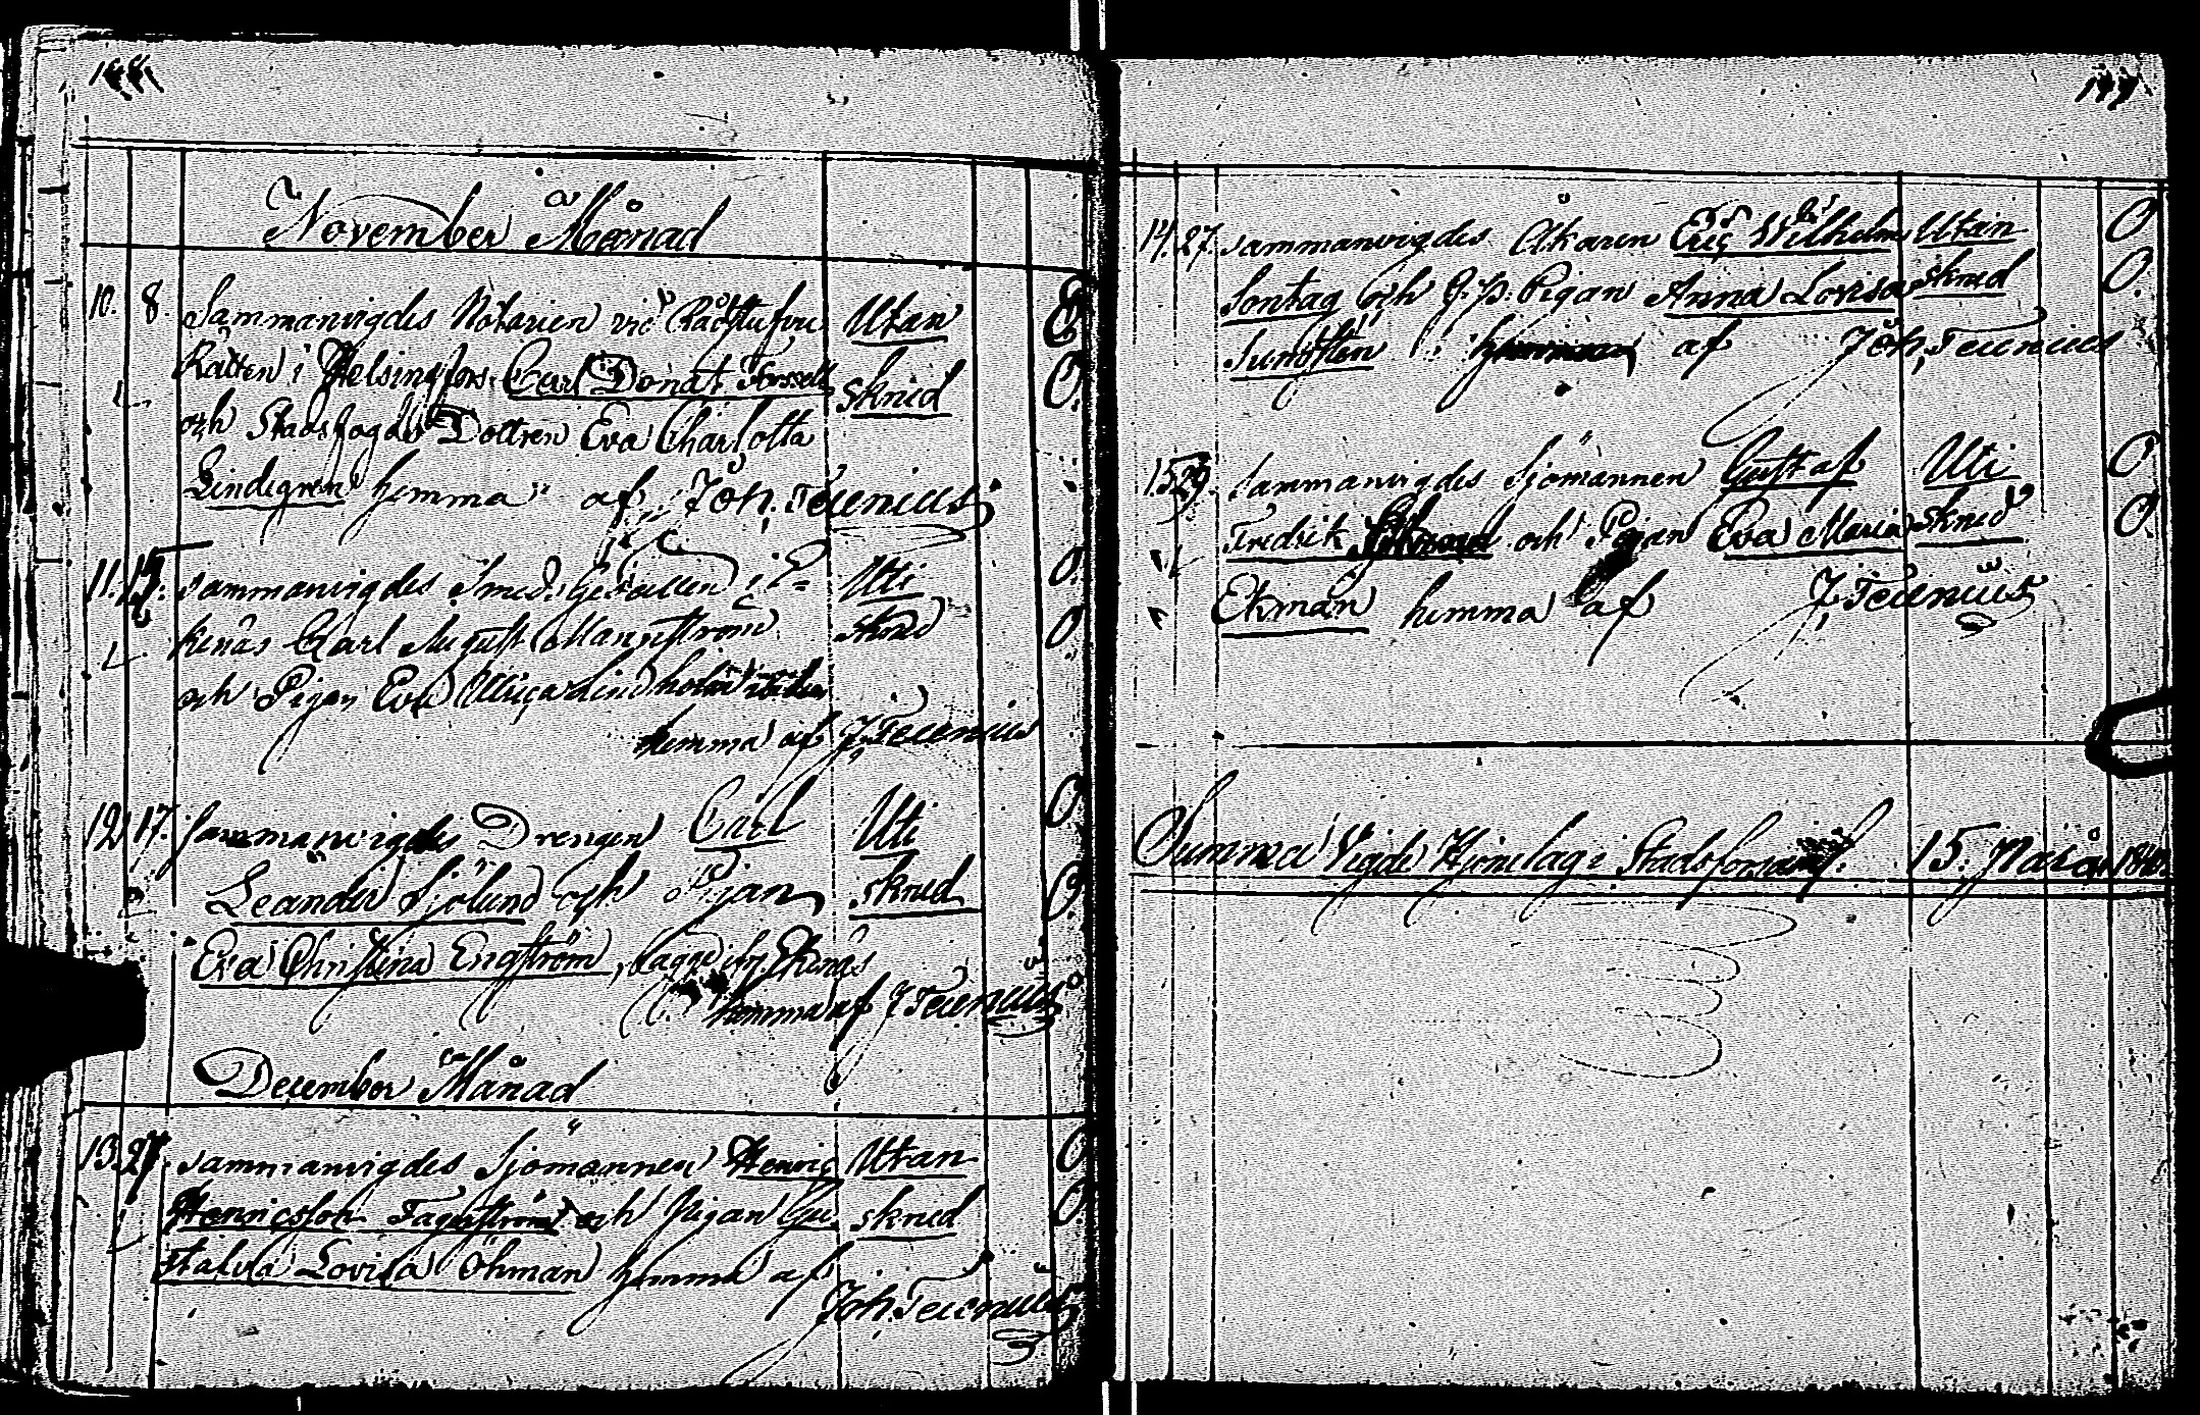 November Månad
10. 8. Sammanvigdes Notarien vid Rådstufvu Utan
Rätten i Helsingfors Carl Donat Forssell skrud
och Stadsfogde Dottren Eva Charlotta
Lindegren hemma af Joh. Tecenius
11. Sammanvigdes Smeds Gesällen i E= Uti
kenäs Carl August Mannström skrud
och Pigan Eva Ulrica Lindholm
hemma af J. Tecenius
12. 17. Sammanvigdes Drengen Carl Uti
Leander Sjölund och Pigan skrud
Eva Christina Engström, bägge ifr. Ekenäs
hemma af J Tecenius
December Månad
13. 27. Sammanvigdes Sjömannen Henric Utan
Henricsson Fagerström och Pigan Gu- skrud
stafva Lovisa Öhman hemma af
Joh. Tecenius
14. 27. Sammanvigdes Åkaren Eric Wilhelm Utan
Sontag och G. p. Pigan Anna Lovisa skrud
Sundsten af Joh. Tecenius
15. 29. Sammanvigdes Sjömannen Gustaf Uti
Fredrik och Pigan Eva Maria skrud
Ekman hemma af J. Tecenius
Summa Vigde Hjonelag i Stadsförsaml. 15. Par år